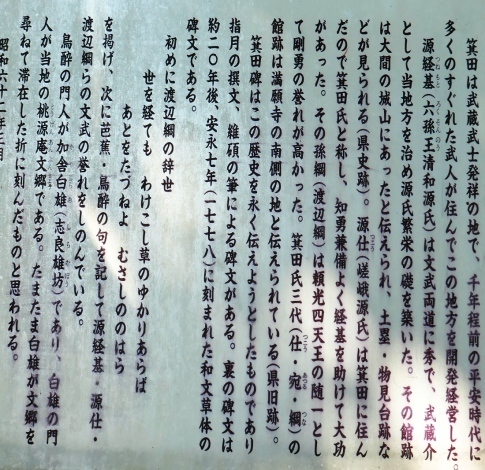 箕田は武蔵武士発祥の地で、千年程前の平安時代に
多くのすぐれた武人が住んでこの地方を開発経営した。
源経基(六孫王清和源氏)は文武両道に秀で、武蔵介
として当地方を治め源氏繁栄の礎を築いた。その館跡
は大間の城山にあったと伝えられ、土塁・物見台跡な
どが見られる(県史跡)。源仕(嵯峨源氏)は箕田に住ん
だので箕田氏と称し、知勇兼備よく経基を助けて大功
があった。その孫綱(渡辺綱)は頼光四天王の随一とし
て剛勇の誉れが高かった。箕田氏三代(仕・宛・綱)の
館跡は満願寺の南側の地と伝えられている(県旧跡)。
箕田碑はこの歴史を永く伝えようとしたものであり
指月の撰文、維碩の筆による碑文がある。裏の碑文は
約二〇年後、安永七年(一七七八)に刻まれた和文草体の
碑文である。
初めに渡辺綱の辞世
世を経ても わけこし草のゆかりあらば
あとをたづねよ むさしのはら
を掲げ、次に芭蕉・鳥酔の句を記して源経基・源仕・
渡辺綱らの文武の誉れをしのんでいる。
鳥酔の門人が加舎白雄(志良雄坊)であり、白雄の門
人が当地の桃源庵文郷である。たまたま白雄が文郷を
尋ねて滞在した折に刻んだものと思われる。
昭和六十二年三月